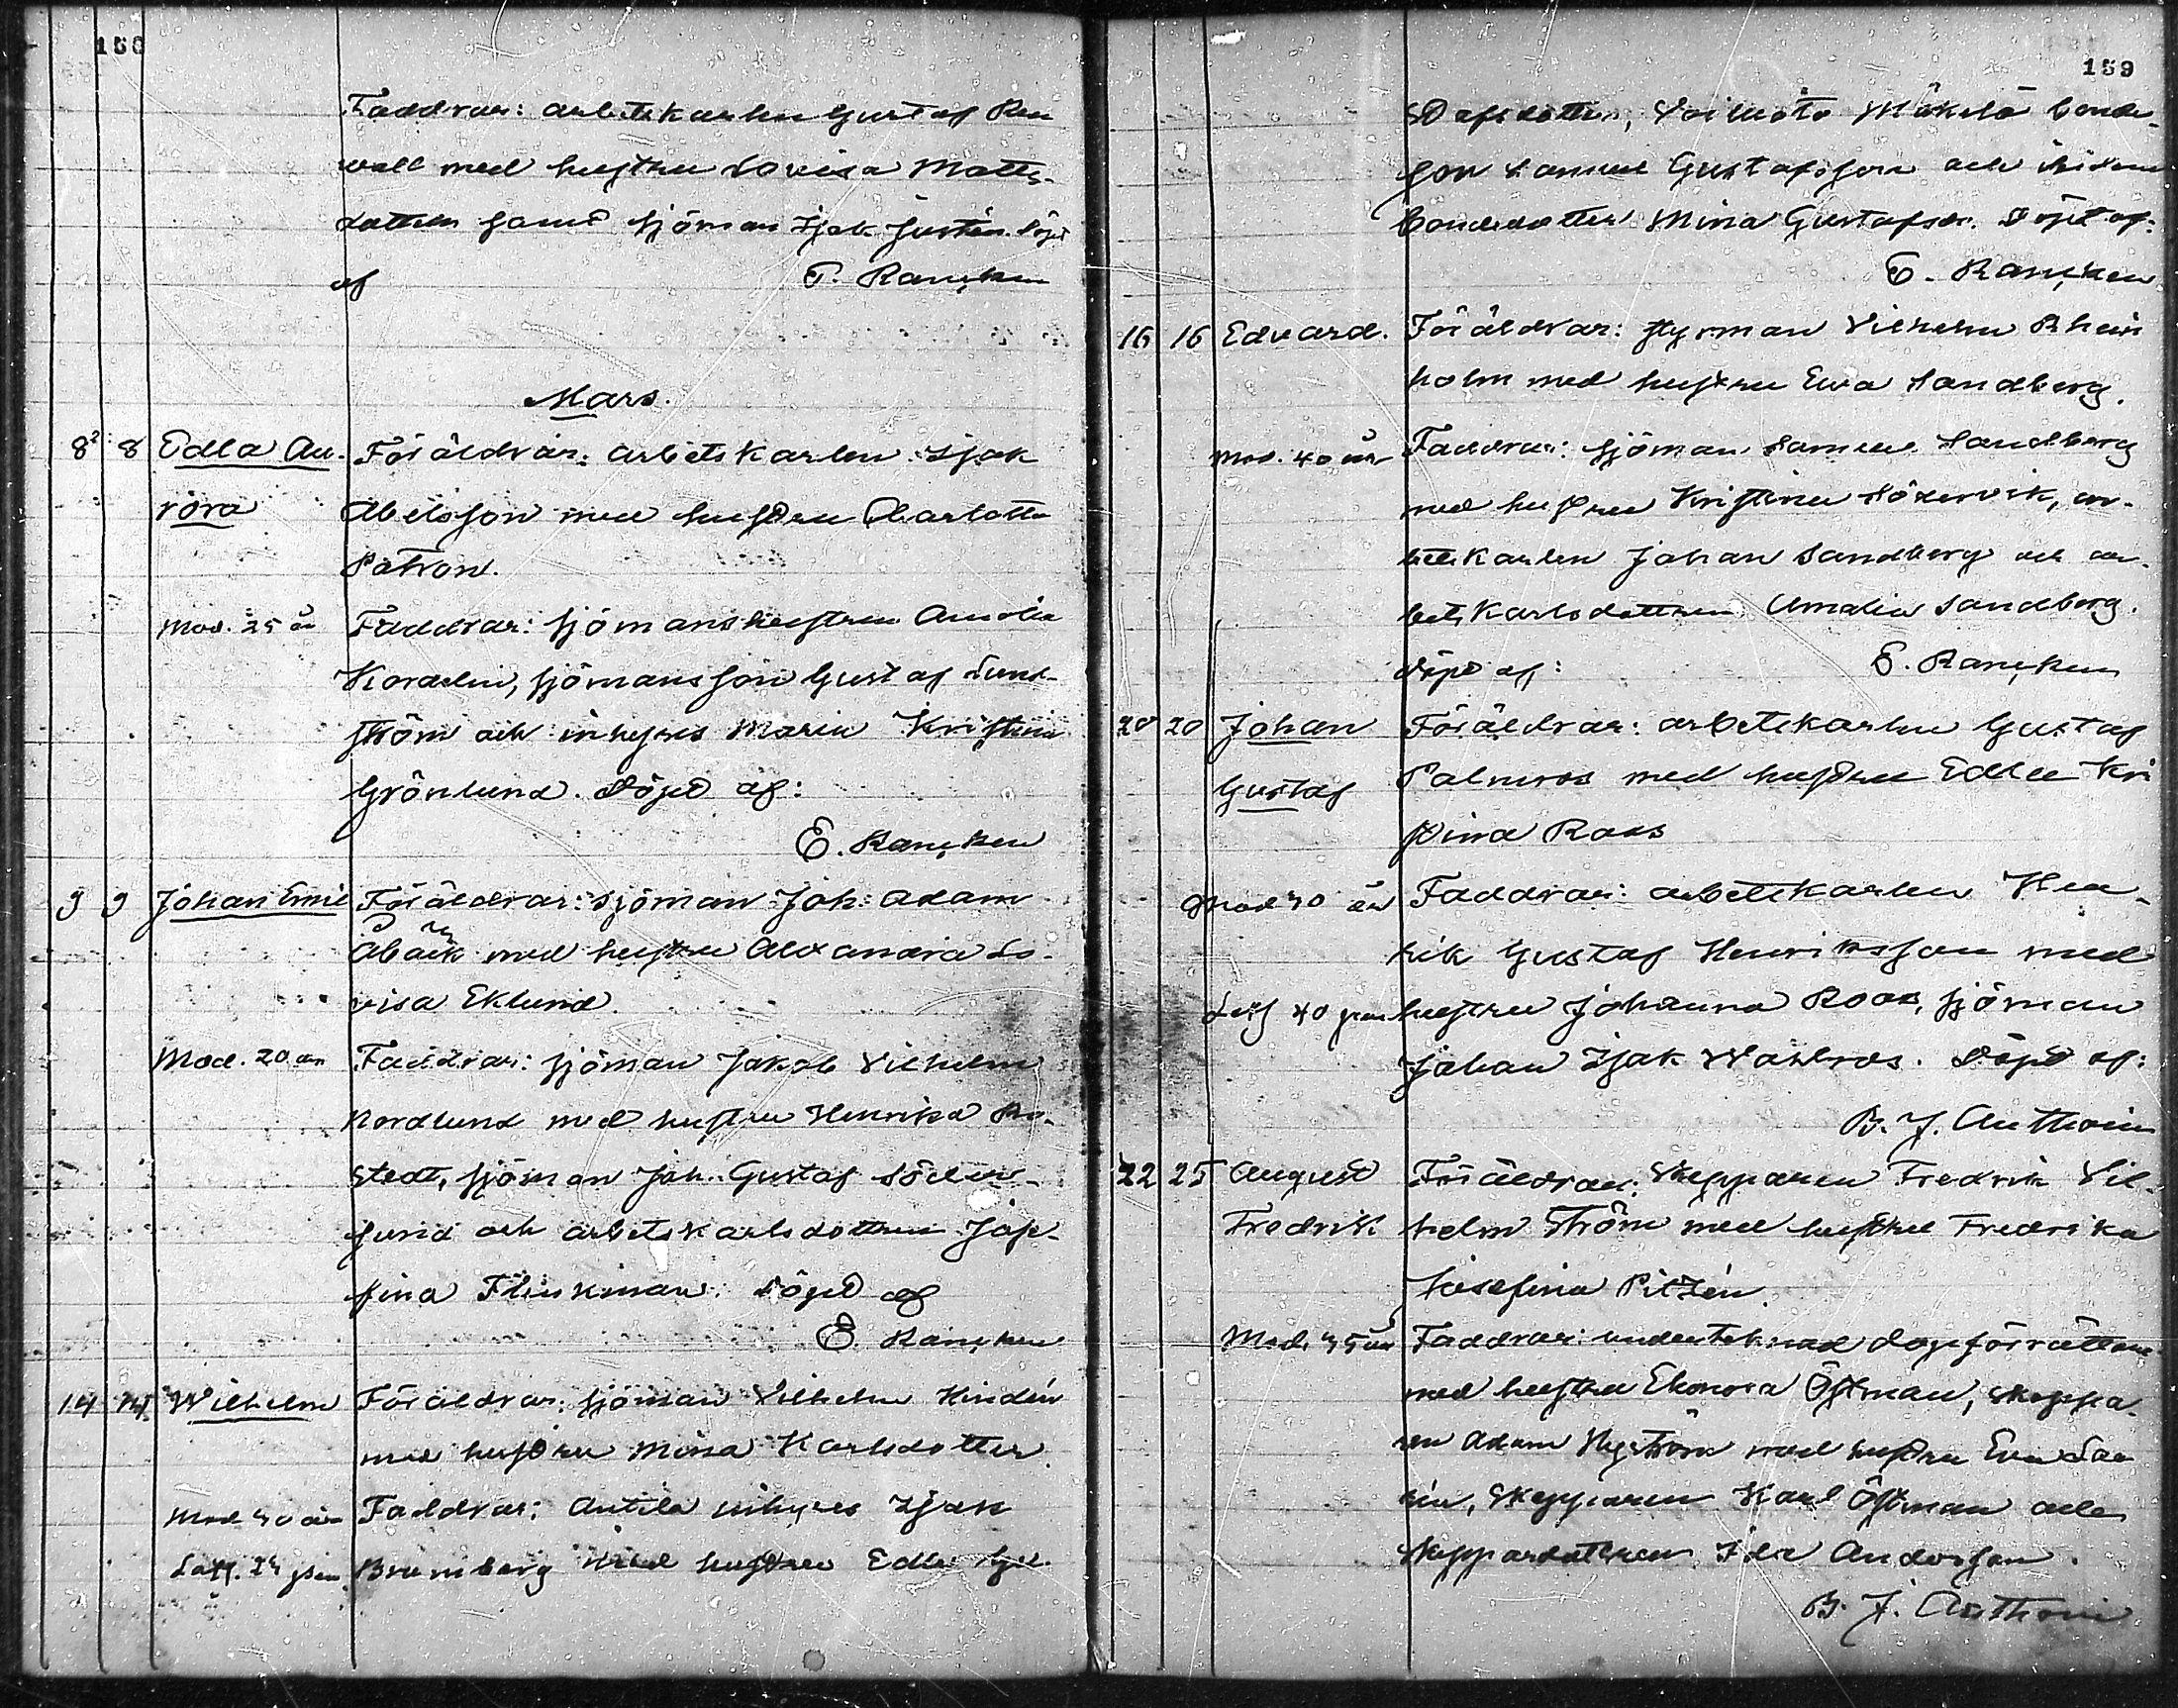 158
Faddrar: arbetskarlen Gustaf Ren
wall med hustru Lovisa Matts-
dotter samt sjöman Isak Justén. Döpt
af E. Rancken
Mars.
8 8 Edla Au- Föräldrar: arbetskarlen Isak
rora Abelsson med hustru Charlotta
Patron.
Mod. 25 år Faddrar: sjömanshustrun Amalia
Koralin, sjömansson Gustaf Sund-
ström och inhyses Maria Kristina
Grönlund. Döpt af:
E. Rancken
9 9 Johan Emil Föräldrar: sjöman Joh. Adam
Åbäck med hustru Alexandra Lo-
visa Eklund.
Mod. 20 år Faddrar: sjöman Jakob Vilhelm
Nordlund med hustru Henrika Ro-
stedt, sjöman Joh. Gustaf Söder-
lund och arbetskarlsdottren Jose-
fina Flinkman. Döpt af
E. Rancken
14 14 Wilhelm Föräldrar: sjöman Vilhelm Hindén
med hustru Mina Karlsdotter.
Mod 40 år Faddrar: Antila inhyses Isak
Brunberg med hustru Edla
159
Bonde-
son Samuel Gustafsson och
bondedotter Mina Gustafsdr. Döpt af:
E. Rancken
16 16 Edvard. Föräldrar: styrman Vilhelm Rhein
holm med hustru Eva Sandberg.
Mod. 40 år Faddrar: sjöman Samuel Sandberg
med hustru Kristina Södervik, ar-
betskarlen Johan Sandberg och ar-
betskarlsdottren Amalia Sandberg.
Döpt af: E. Rancken
20 20 Johan Föräldrar: arbetskarlen Gustaf
Gustaf Palmros med hustru Edla Kri
stina Roos
Mod 40 år Faddrar: arbetskarlen Hen-
rik Gustaf Henriksson med
hustru Johanna Roos, sjöman
Johan Isak Wahlros. Döpt af:
B. J. Anthoni
22 25 August Föräldrar: Skepparen Fredrik Vil-
Fredrik helm Ström med hustru Fredrika
Josefina Pitzén.
Mod. 35 år Faddrar: undertecknad dopförrättare
med hustru Ekonora Östman, skeppa-
ren Adam Nyström med hustru Eva
Skepparen Karl Östman och
skeppardottren Ida Andersson.
B. J. Anthoni